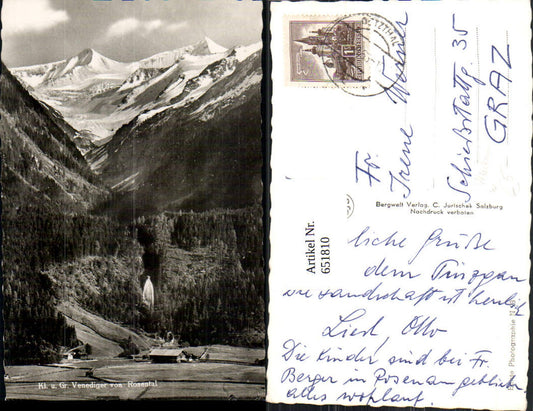 Kl. u. Gr. Venediger von Rosental
Fr.
Irene
Schießstattg. 35
GRAZ
Bergwelt Verlag, C. Jurischek Salzburg
Nachdruck verboten
Artikel Nr.
651810
liebe Grüße
dem
wo Landschaft ist herrlich
Liesl Otto
Die Kinder sind bei Fr.
Berger in Rosenau geblieben
alles wohlauf.